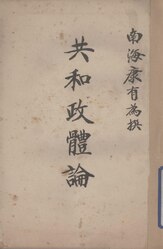 南海康有為撰
共和政體論